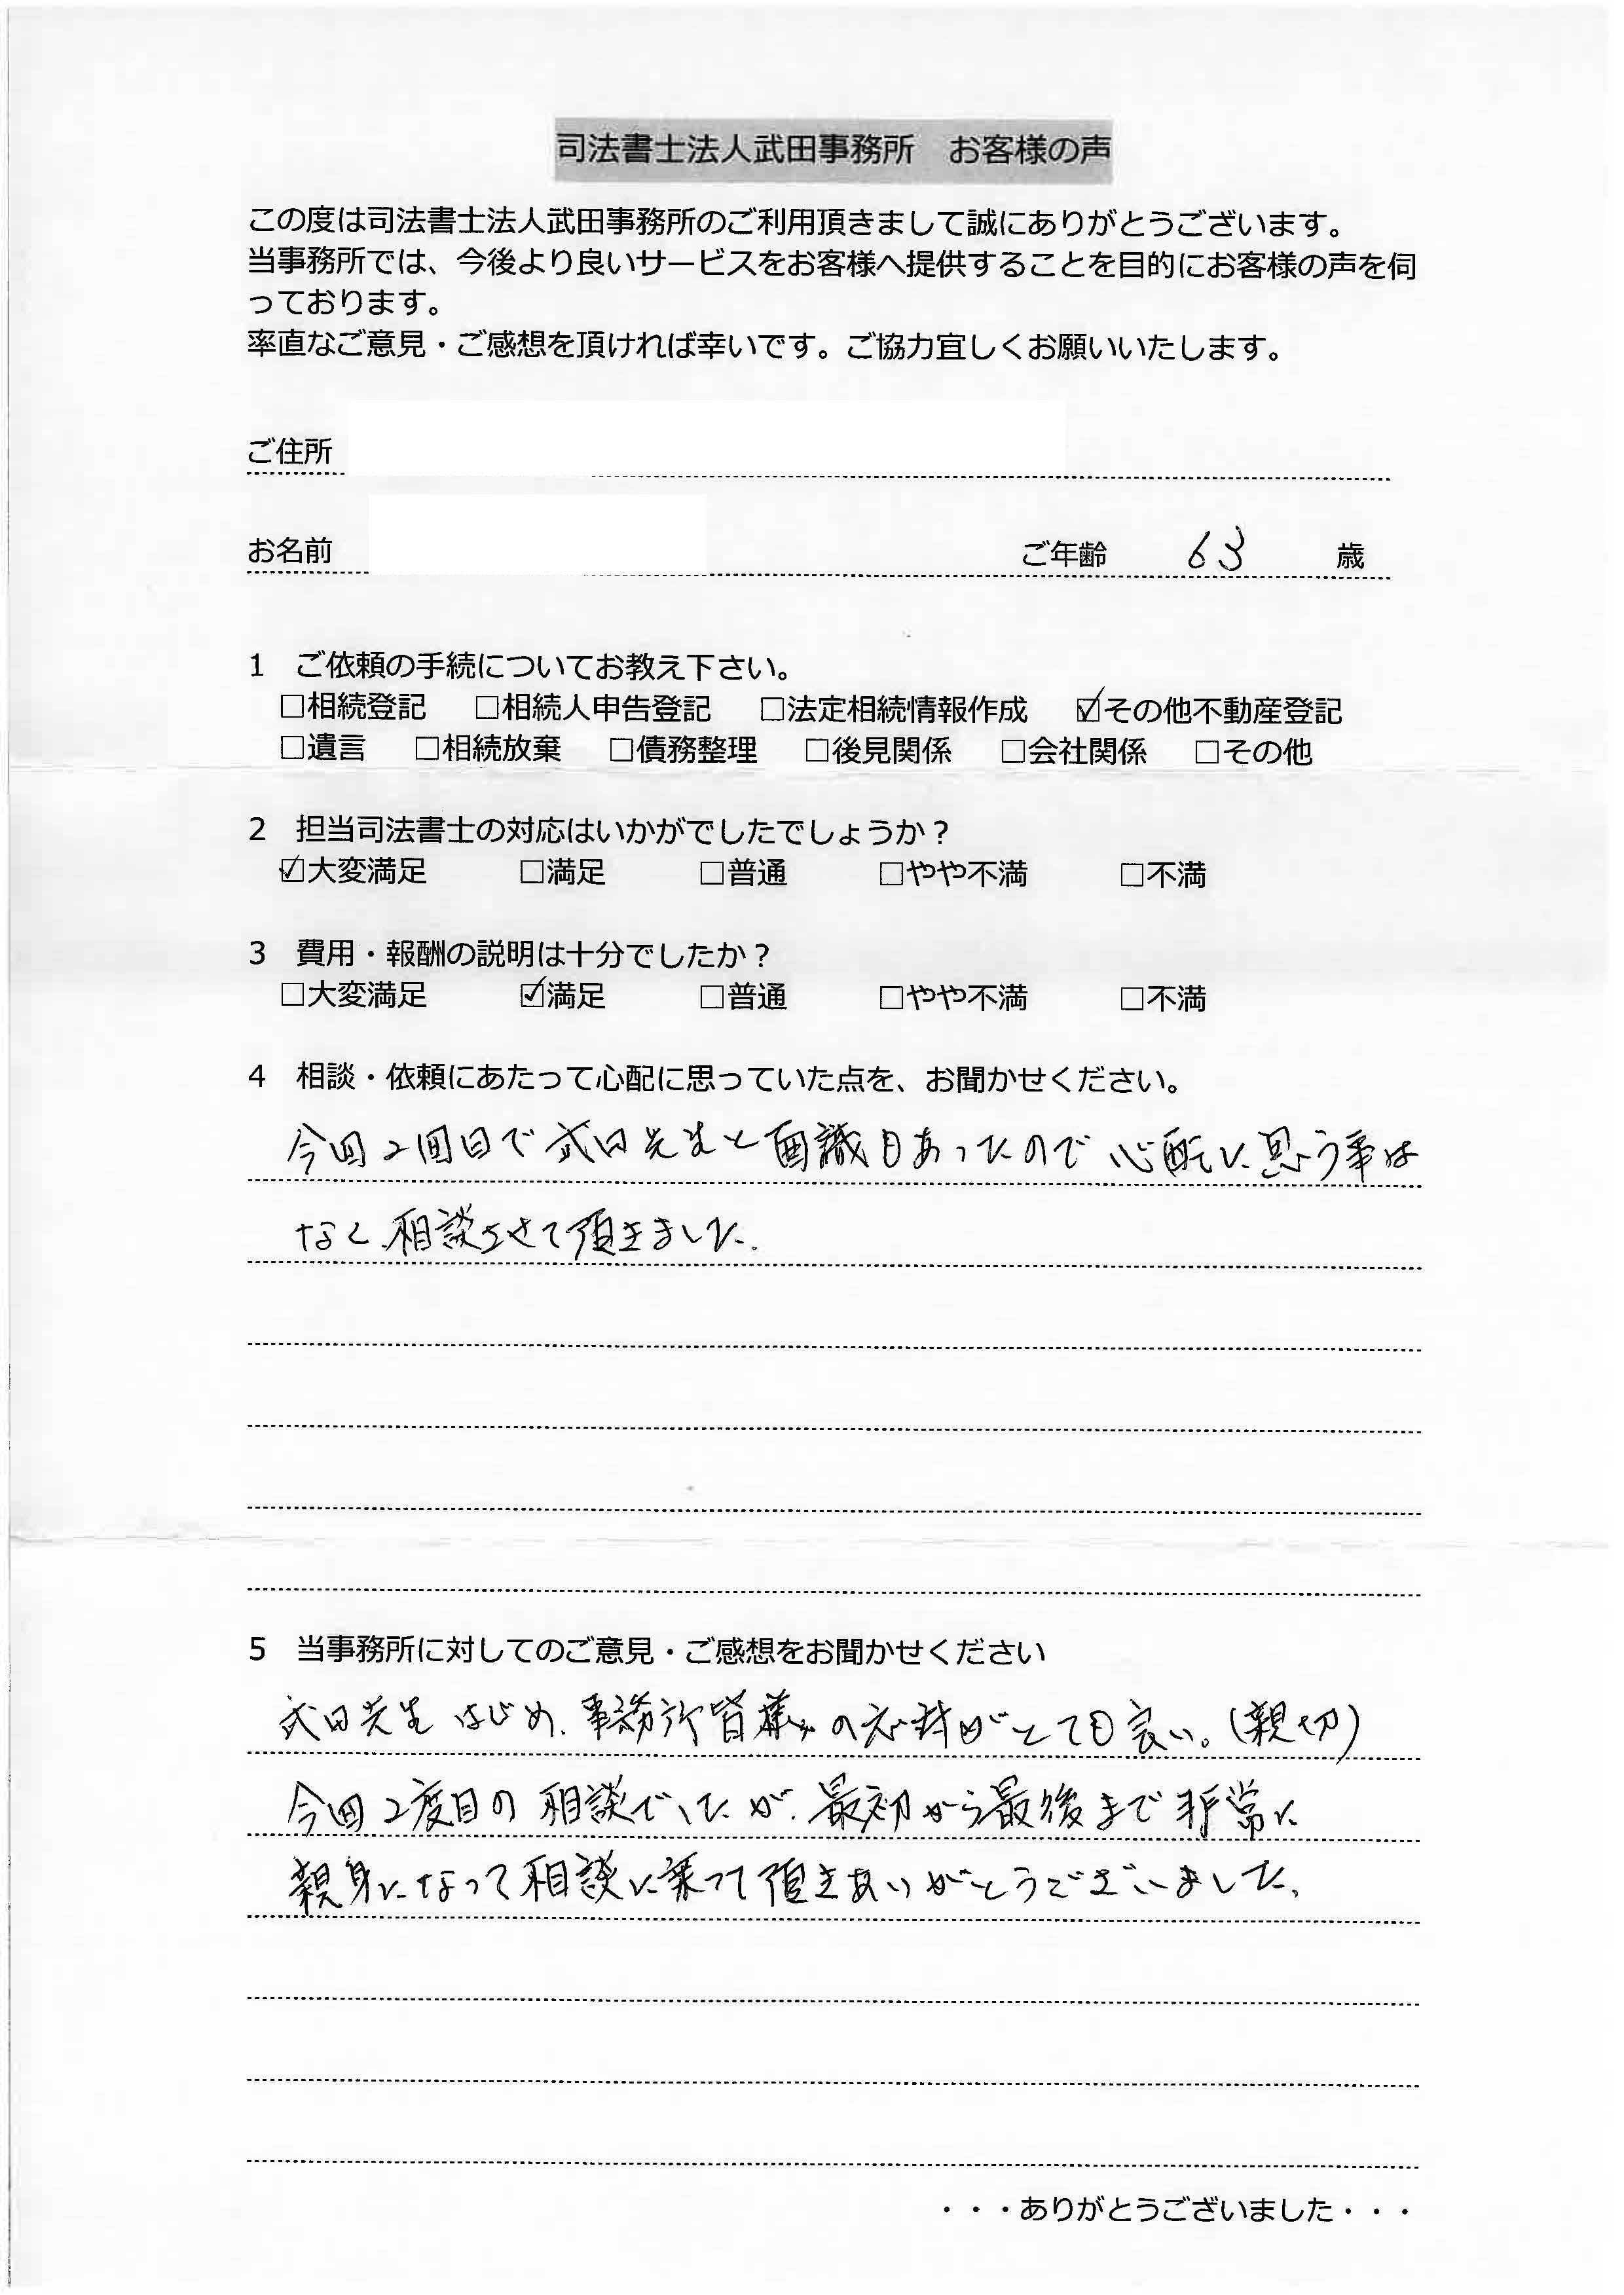 司法書士法人武田事務所　お客様の声
この度は司法書士法人武田事務所のご利用頂きまして誠にありがとうございます。
当事務所では、今後より良いサービスをお客様へ提供することを目的にお客様の声を伺
っております。
率直なご意見・ご感想を頂ければ幸いです。ご協力宜しくお願いいたします。
ご住所
お名前　ご年齢　63　歳
1　ご依頼の手続についてお教え下さい。
□相続登記　□相続人申告登記　□法定相続情報作成　☑その他不動産登記
□遺言　□相続放棄　□債務整理　□後見関係　□会社関係　□その他
2　担当司法書士の対応はいかがでしたでしょうか？
☑大変満足　□満足　□普通　□やや不満　□不満
3　費用・報酬の説明は十分でしたか？
□大変満足　☑満足　□普通　□やや不満　□不満
4　相談・依頼にあたって心配に思っていた点を、お聞かせください。
今回2回目で武田先生と面識もあったので心配に思う事は
なく、相談させて頂きました。
5　当事務所に対してのご意見・ご感想をお聞かせください
武田先生はじめ、事務所皆様の応対がとても良い。(親切)
今回2度目の相談でしたが、最初から最後まで非常に
親身になって相談に乗って頂きありがとうございました。
・・・ありがとうございました・・・